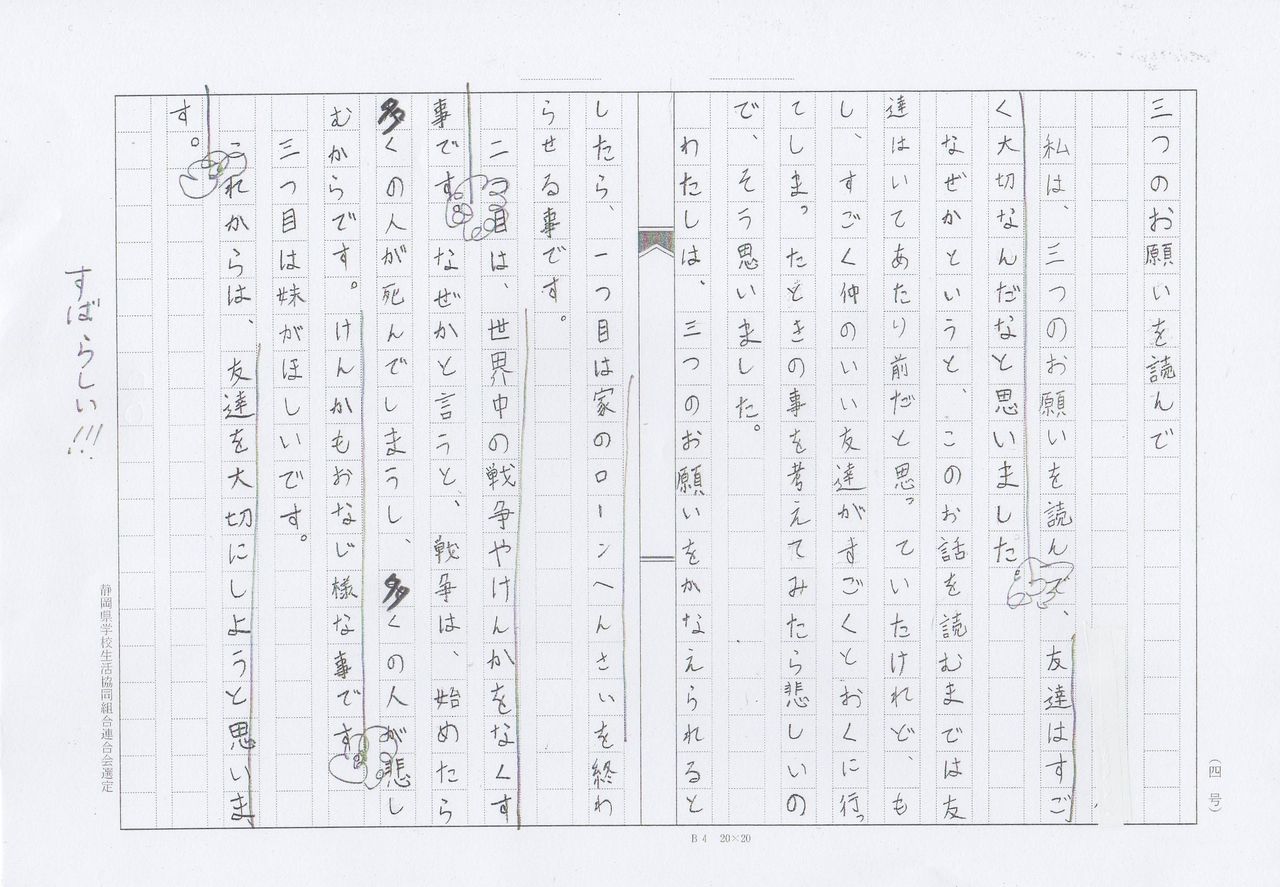 三つのお願いを読んで
私は、三つのお願いを読んで、友達はすご
く大切なんだなと思いました
なぜかというと、このお話を読むまでは友
達はいてあたり前だと思っていたけれど、も
し、すごく仲のいい友達がすごくとおくに行っ
てしまったときの事を考えてみたら悲しいの
で、そう思いました。
わたしは、三つのお願いをかなえられると
したら、一つ目は家のローンへんさいを終わ
らせる事です。
二つ目は、世界中の戦争やけんかをなくす
事です なぜかと言うと、戦争は、始めたら
多くの人が死んでしまうし、多くの人が悲し
むからです。けんかもおなじ様な事です
三つ目は妹がほしいです。
これからは、友達を大切にしようと思いま
す。
すばらしい!!!
(四号)
B4 20×20
静岡県学校生活協同組合連合会選定